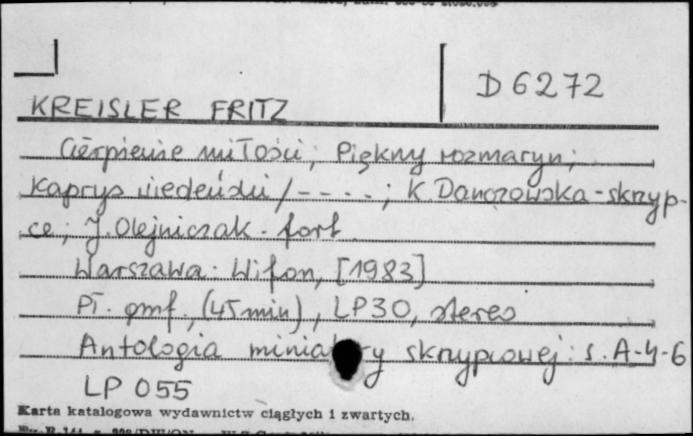 D 6272
KREISLER FRITZ
Cierpienie miłości; Piękny rozmaryn;
Kaprys wiedeński / - - - - ; K. Danczowska - skrzyp-
ce; J. Olejniczak - fort.
Warszawa: Wifon, [1983]
Pł. gmf., (45 min), LP30, stereo
Antologia miniatury skrzypcowej: s. A-4-6
LP 055
Karta katalogowa wydawnictw ciągłych i zwartych.